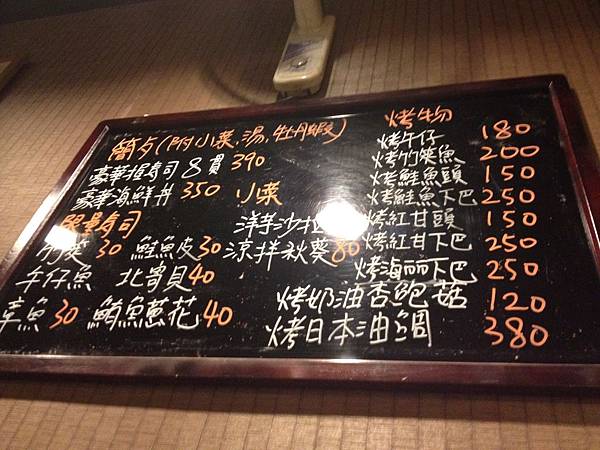 簡夕(附小菜,湯,牡丹蝦)
豪華握寿司8貫 390
豪華海鮮丼 350
限量寿司
30 鮭魚皮 30
午仔魚 北寄貝 40
章魚 30 鮪魚蔥花 40
小菜
洋芋沙拉
涼拌秋葵 80
烤物
烤午仔 180
烤竹筴魚 200
烤鮭魚頭 150
烤鮭魚下巴 250
烤紅甘頭 150
烤紅甘下巴 250
烤海丽下巴 250
烤奶油杏鮑菇 120
烤日本油魽 380